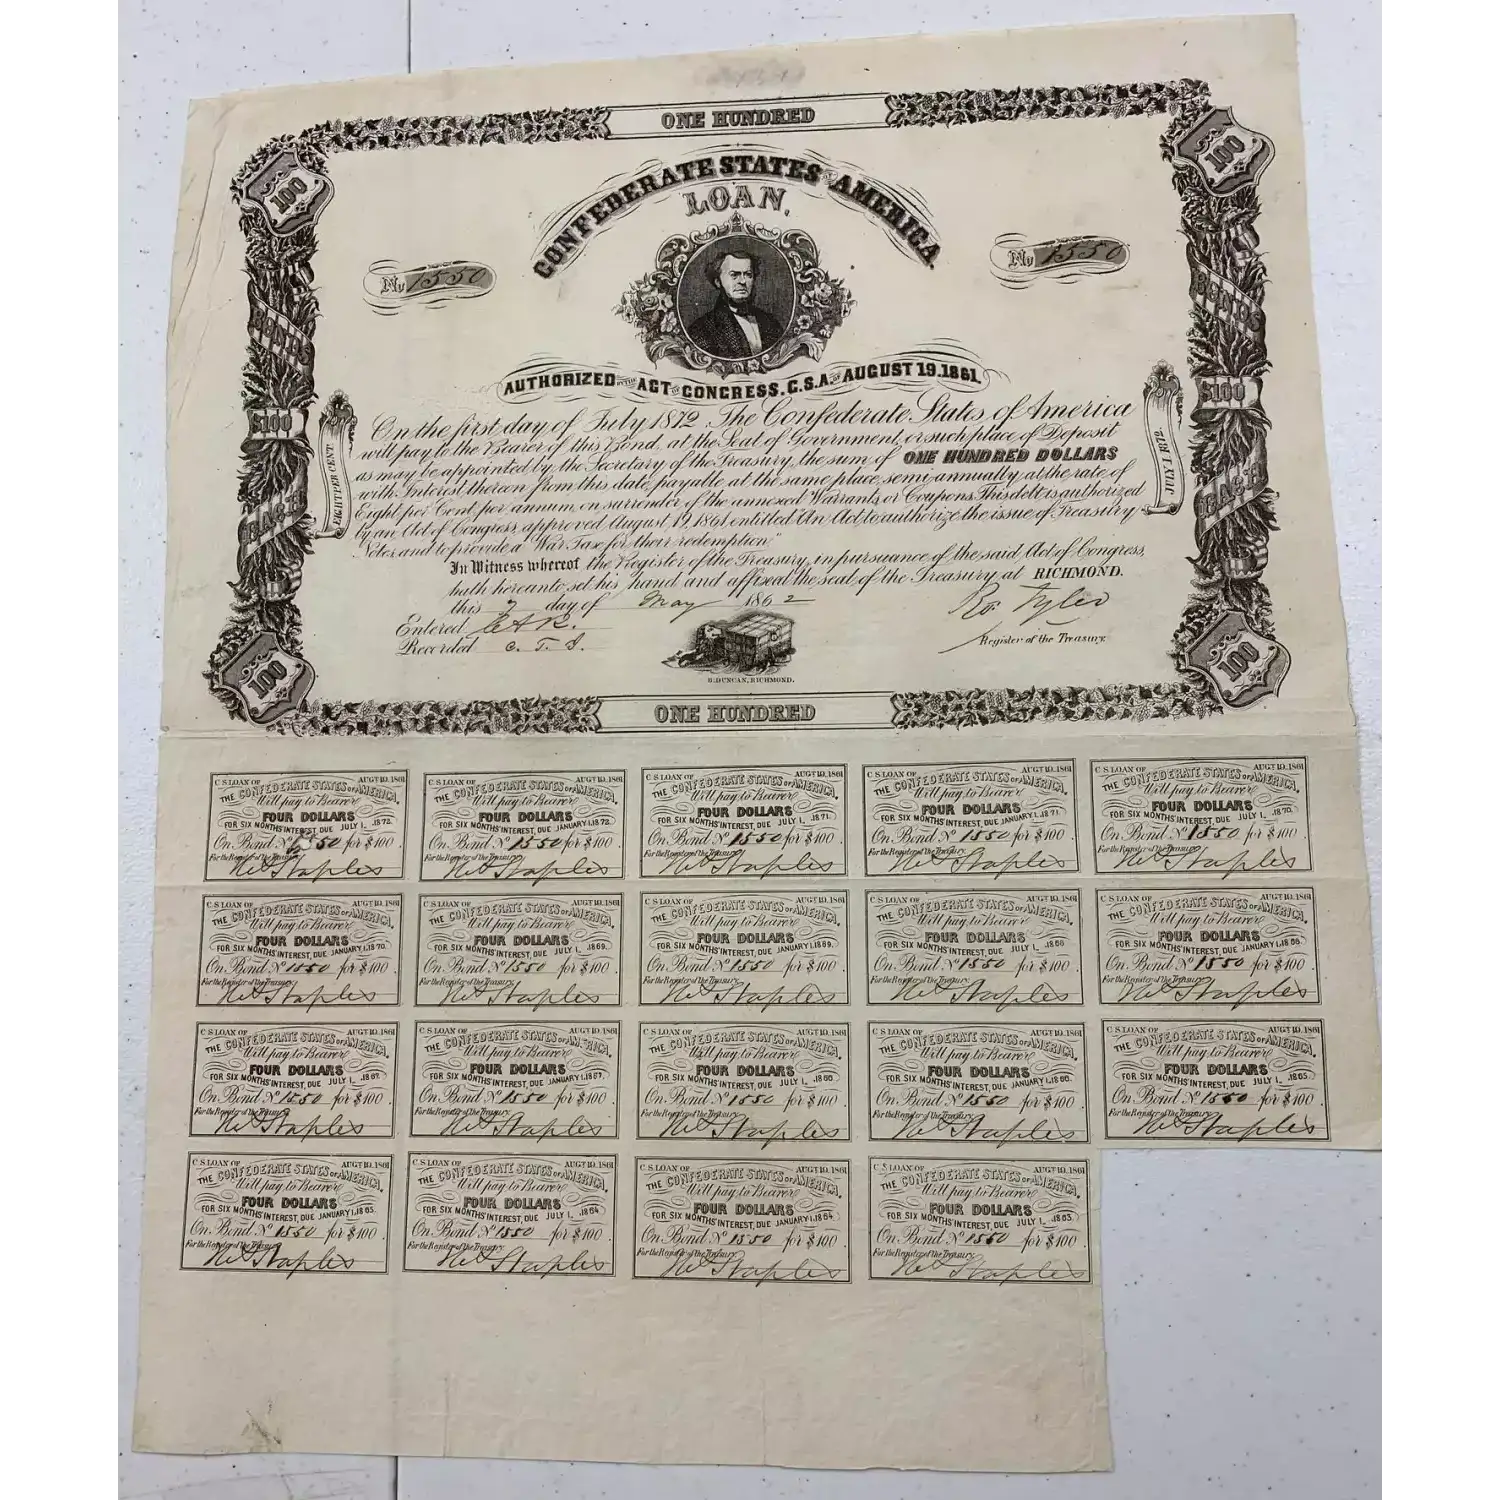 ONE HUNDRED
100
100
CONFEDERATE STATES OF AMERICA
LOAN.
No 1550
No 1550
AUTHORIZED BY THE ACT OF CONGRESS. C.S.A. OF AUGUST 19.1861.
BONDS
$100
EACH
BONDS
$100
EACH
EIGHT PER CENT.
JULY 1 1872.
On the first day of July 1872 The Confederate States of America
will pay to the Bearer of this Bond, at the Seat of Government, or such place of Deposit
as may be appointed by the Secretary of the Treasury, the sum of ONE HUNDRED DOLLARS
with Interest thereon from this date, payable at the same place, semi-annually, at the rate of
Eight per Cent per annum on surrender of the annexed Warrants or Coupons. This debt is authorized
by an Act of Congress approved August 19, 1861, entitled "An Act to authorize the issue of Treasury
Notes, and to provide a War Tax for their redemption"
In Witness whereof the Register of the Treasury, in pursuance of the said Act of Congress,
hath hereunto set his hand and affixed the seal of the Treasury at RICHMOND.
this 7 day of May 1862
Ro. Tyler
Entered
Register of the Treasury.
Recorded C. T. J.
B. DUNCAN, RICHMOND.
100
100
ONE HUNDRED
C S LOAN OF AUGT 19, 1861
THE CONFEDERATE STATES OF AMERICA.
Will pay to Bearer
FOUR DOLLARS
FOR SIX MONTHS' INTEREST, DUE JULY 1, 1872.
On Bond No 1550 for $100.
For the Register of the Treasury.
C S LOAN OF AUGT 19, 1861
THE CONFEDERATE STATES OF AMERICA.
Will pay to Bearer
FOUR DOLLARS
FOR SIX MONTHS' INTEREST, DUE JANUARY 1, 1872.
On Bond No 1550 for $100.
For the Register of the Treasury.
C S LOAN OF AUGT 19, 1861
THE CONFEDERATE STATES OF AMERICA.
Will pay to Bearer
FOUR DOLLARS
FOR SIX MONTHS' INTEREST, DUE JULY 1, 1871.
On Bond No 1550 for $100.
For the Register of the Treasury.
C S LOAN OF AUGT 19, 1861
THE CONFEDERATE STATES OF AMERICA.
Will pay to Bearer
FOUR DOLLARS
FOR SIX MONTHS' INTEREST, DUE JANUARY 1, 1871.
On Bond No 1550 for $100.
For the Register of the Treasury.
C S LOAN OF AUGT 19, 1861
THE CONFEDERATE STATES OF AMERICA.
Will pay to Bearer
FOUR DOLLARS
FOR SIX MONTHS' INTEREST, DUE JULY 1, 1870.
On Bond No 1550 for $100.
For the Register of the Treasury.
C S LOAN OF AUGT 19, 1861
THE CONFEDERATE STATES OF AMERICA.
Will pay to Bearer
FOUR DOLLARS
FOR SIX MONTHS' INTEREST, DUE JANUARY 1, 1870.
On Bond No 1550 for $100.
For the Register of the Treasury.
C S LOAN OF AUGT 19, 1861
THE CONFEDERATE STATES OF AMERICA.
Will pay to Bearer
FOUR DOLLARS
FOR SIX MONTHS' INTEREST, DUE JULY 1, 1869.
On Bond No 1550 for $100.
For the Register of the Treasury.
C S LOAN OF AUGT 19, 1861
THE CONFEDERATE STATES OF AMERICA.
Will pay to Bearer
FOUR DOLLARS
FOR SIX MONTHS' INTEREST, DUE JANUARY 1, 1869.
On Bond No 1550 for $100.
For the Register of the Treasury.
C S LOAN OF AUGT 19, 1861
THE CONFEDERATE STATES OF AMERICA.
Will pay to Bearer
FOUR DOLLARS
FOR SIX MONTHS' INTEREST, DUE JULY 1, 1868
On Bond No 1550 for $100.
For the Register of the Treasury.
C S LOAN OF AUGT 19, 1861
THE CONFEDERATE STATES OF AMERICA.
Will pay to Bearer
FOUR DOLLARS
FOR SIX MONTHS' INTEREST, DUE JANUARY 1, 1868.
On Bond No 1550 for $100.
For the Register of the Treasury.
C S LOAN OF AUGT 19, 1861
THE CONFEDERATE STATES OF AMERICA.
Will pay to Bearer
FOUR DOLLARS
FOR SIX MONTHS' INTEREST, DUE JULY 1, 1867.
On Bond No 1550 for $100.
For the Register of the Treasury.
C S LOAN OF AUGT 19, 1861
THE CONFEDERATE STATES OF AMERICA.
Will pay to Bearer
FOUR DOLLARS
FOR SIX MONTHS' INTEREST, DUE JANUARY 1, 1867.
On Bond No 1550 for $100.
For the Register of the Treasury.
C S LOAN OF AUGT 19, 1861
THE CONFEDERATE STATES OF AMERICA.
Will pay to Bearer
FOUR DOLLARS
FOR SIX MONTHS' INTEREST, DUE JULY 1, 1866
On Bond No 1550 for $100.
For the Register of the Treasury.
C S LOAN OF AUGT 19, 1861
THE CONFEDERATE STATES OF AMERICA.
Will pay to Bearer
FOUR DOLLARS
FOR SIX MONTHS' INTEREST, DUE JANUARY 1, 1866.
On Bond No 1550 for $100.
For the Register of the Treasury.
C S LOAN OF AUGT 19, 1861
THE CONFEDERATE STATES OF AMERICA.
Will pay to Bearer
FOUR DOLLARS
FOR SIX MONTHS' INTEREST, DUE JULY 1, 1865.
On Bond No 1550 for $100.
For the Register of the Treasury.
C S LOAN OF AUGT 19, 1861
THE CONFEDERATE STATES OF AMERICA.
Will pay to Bearer
FOUR DOLLARS
FOR SIX MONTHS' INTEREST, DUE JANUARY 1, 1865.
On Bond No 1550 for $100.
For the Register of the Treasury.
C S LOAN OF AUGT 19, 1861
THE CONFEDERATE STATES OF AMERICA.
Will pay to Bearer
FOUR DOLLARS
FOR SIX MONTHS' INTEREST, DUE JULY 1, 1864
On Bond No 1550 for $100.
For the Register of the Treasury.
C S LOAN OF AUGT 19, 1861
THE CONFEDERATE STATES OF AMERICA.
Will pay to Bearer
FOUR DOLLARS
FOR SIX MONTHS' INTEREST, DUE JANUARY 1, 1864.
On Bond No 1550 for $100.
For the Register of the Treasury.
C S LOAN OF AUGT 19, 1861
THE CONFEDERATE STATES OF AMERICA.
Will pay to Bearer
FOUR DOLLARS
FOR SIX MONTHS' INTEREST, DUE JULY 1, 1863.
On Bond No 1550 for $100.
For the Register of the Treasury.